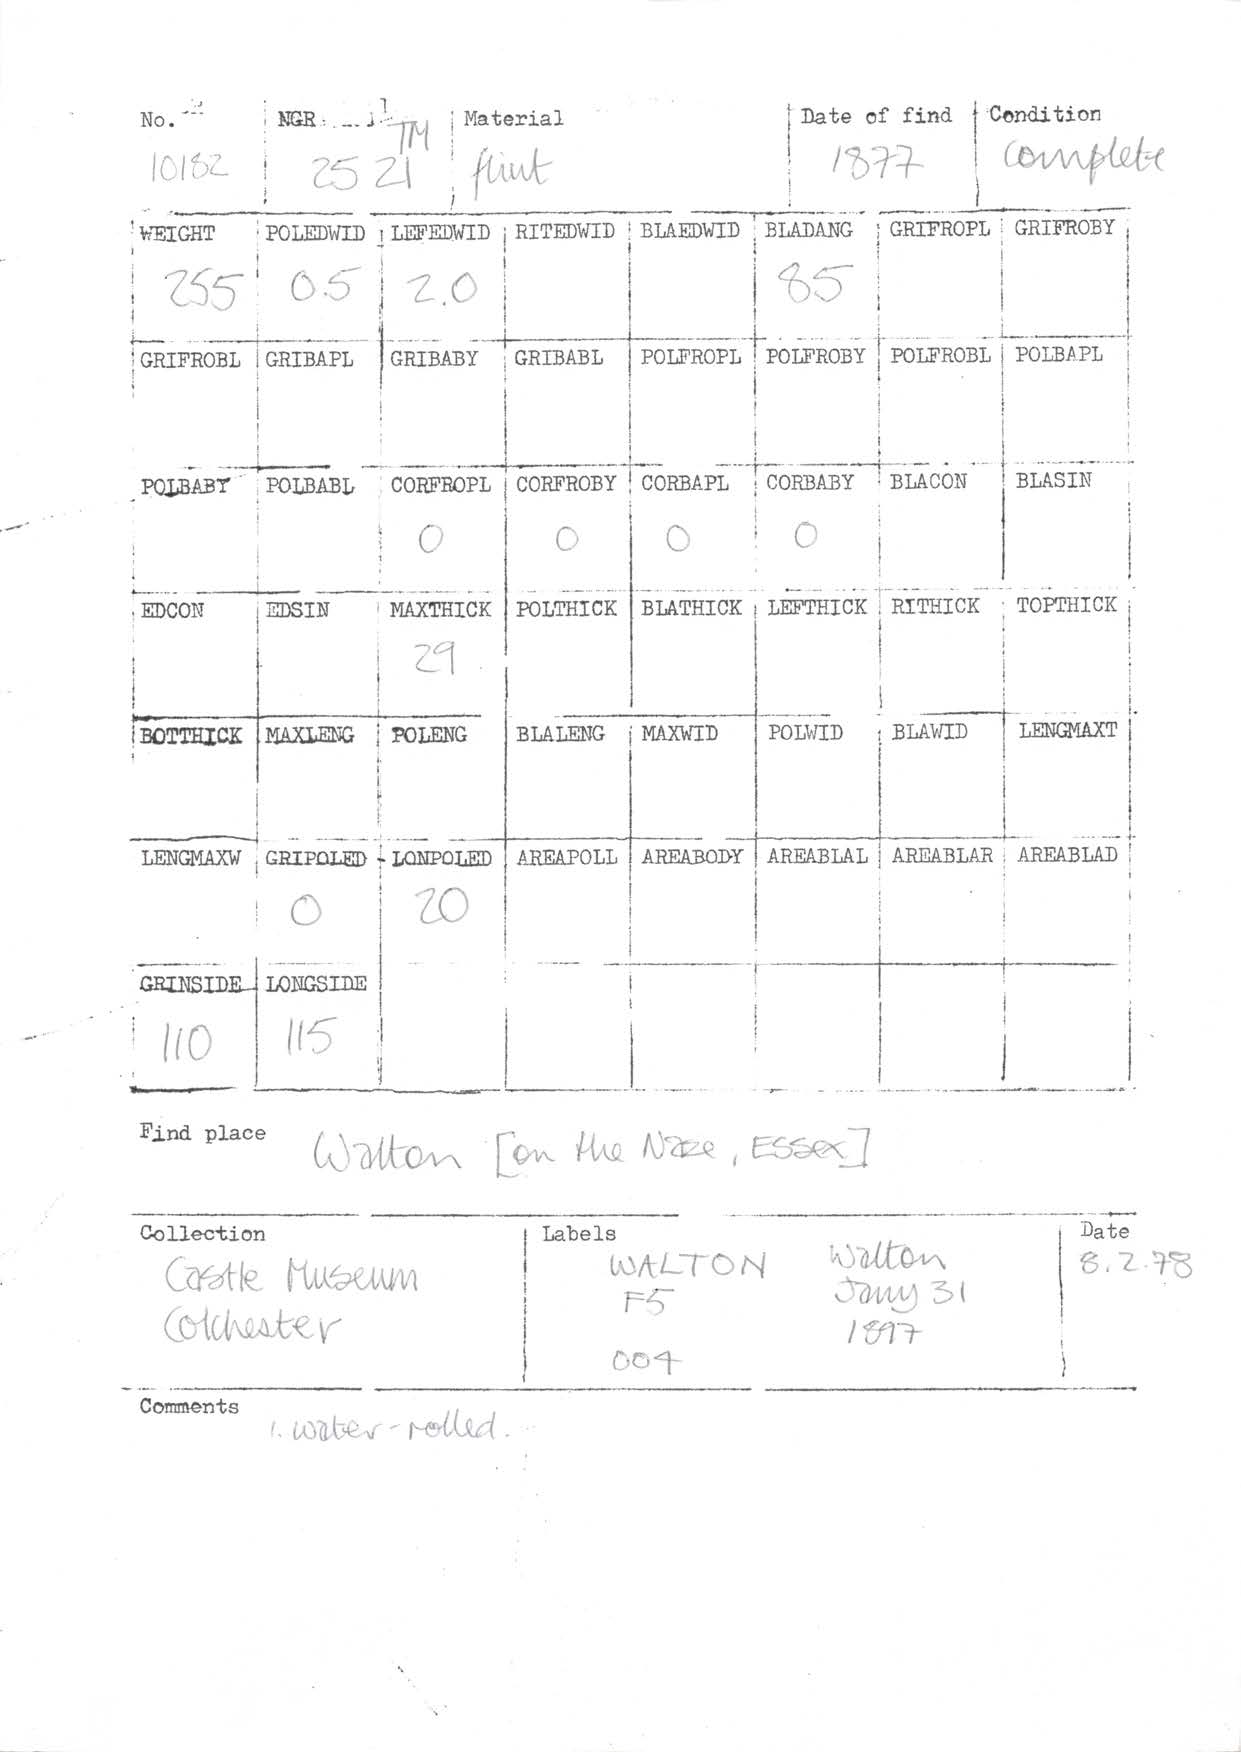 No. NGR Material Date of find Condition
10182 TM 25 21 flint 1877 complete
WEIGHT POLEDWID LEFEDWID RITEDWID BLAEDWID BLADANG GRIFROPL GRIFROBY
255 0.5 2.0 85
GRIFROBL GRIBAPL GRIBABY GRIBABL POLFROPL POLFROBY POLFROBL POLBAPL
POLBABY POLBABL CORFROPL CORFROBY CORBAPL CORBABY BLACON BLASIN
0 0 0 0
EDCON EDSIN MAXTHICK POLTHICK BLATHICK LEFTHICK RITHICK TOPTHICK
29
BOTTHICK MAXLENG POLENG BLALENG MAXWID POLWID BLAWID LENGMAXT
LENGMAXW GRIPOLED LONPOLED AREAPOLL AREABODY AREABLAL AREABLAR AREABLAD
0 20
GRINSIDE LONGSIDE
110 115
Find place Walton [on the Naze, Essex]
Collection
Castle Museum
Colchester
Labels
WALTON
F5
004
Walton
Jany 31
1897
Date
8.2.78
Comments
1. water-rolled.